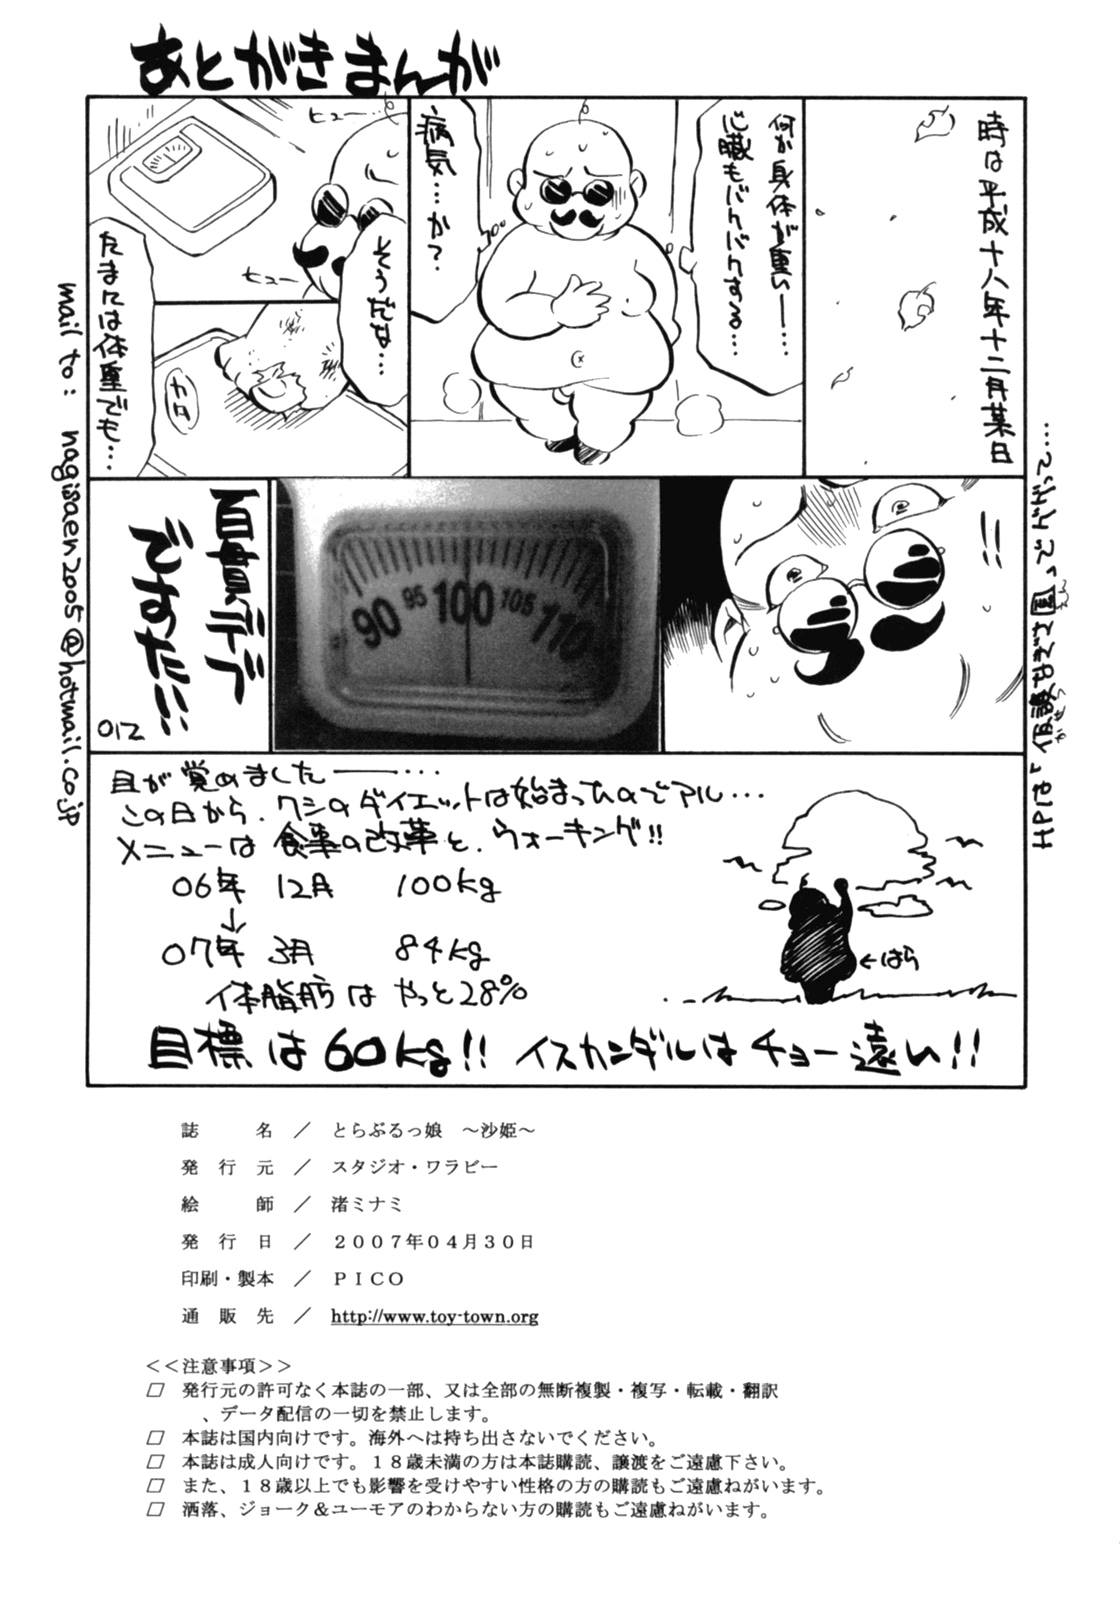 あとがきまんが
時は平成十八年十二月某日
何か身体が重い―…
心臓もバクバクする…
病気…か?
ヒュー…
そうだな…
ヒュー
たまには体重でも…
カタ
!!
90 95 100 105 110
百貫デブ
ですた!!
012
目が覚めました――…
この日から、ワシのダイエットは始まったのでアル…
メニューは食事の改革と、ウォーキング!!
06年 12月 100kg
↓
07年 3月 84kg
体脂肪は やっと28%
←はら
目標は60kg!! イスカンダルはチョー遠い!!
mail to: nagisaen2005@hotmail.co.jp
誌名／とらぶるっ娘 ～沙姫～
発行元／スタジオ・ワラビー
絵師／渚ミナミ
発行日／２００７年０４月３０日
印刷・製本／ＰＩＣＯ
通販先／http://www.toy-town.org
＜＜注意事項＞＞
□ 発行元の許可なく本誌の一部、又は全部の無断複製・複写・転載・翻訳
、データ配信の一切を禁止します。
□ 本誌は国内向けです。海外へは持ち出さないでください。
□ 本誌は成人向けです。１８歳未満の方は本誌購読、譲渡をご遠慮下さい。
□ また、１８歳以上でも影響を受けやすい性格の方の購読もご遠慮ねがいます。
□ 洒落、ジョーク＆ユーモアのわからない方の購読もご遠慮ねがいます。